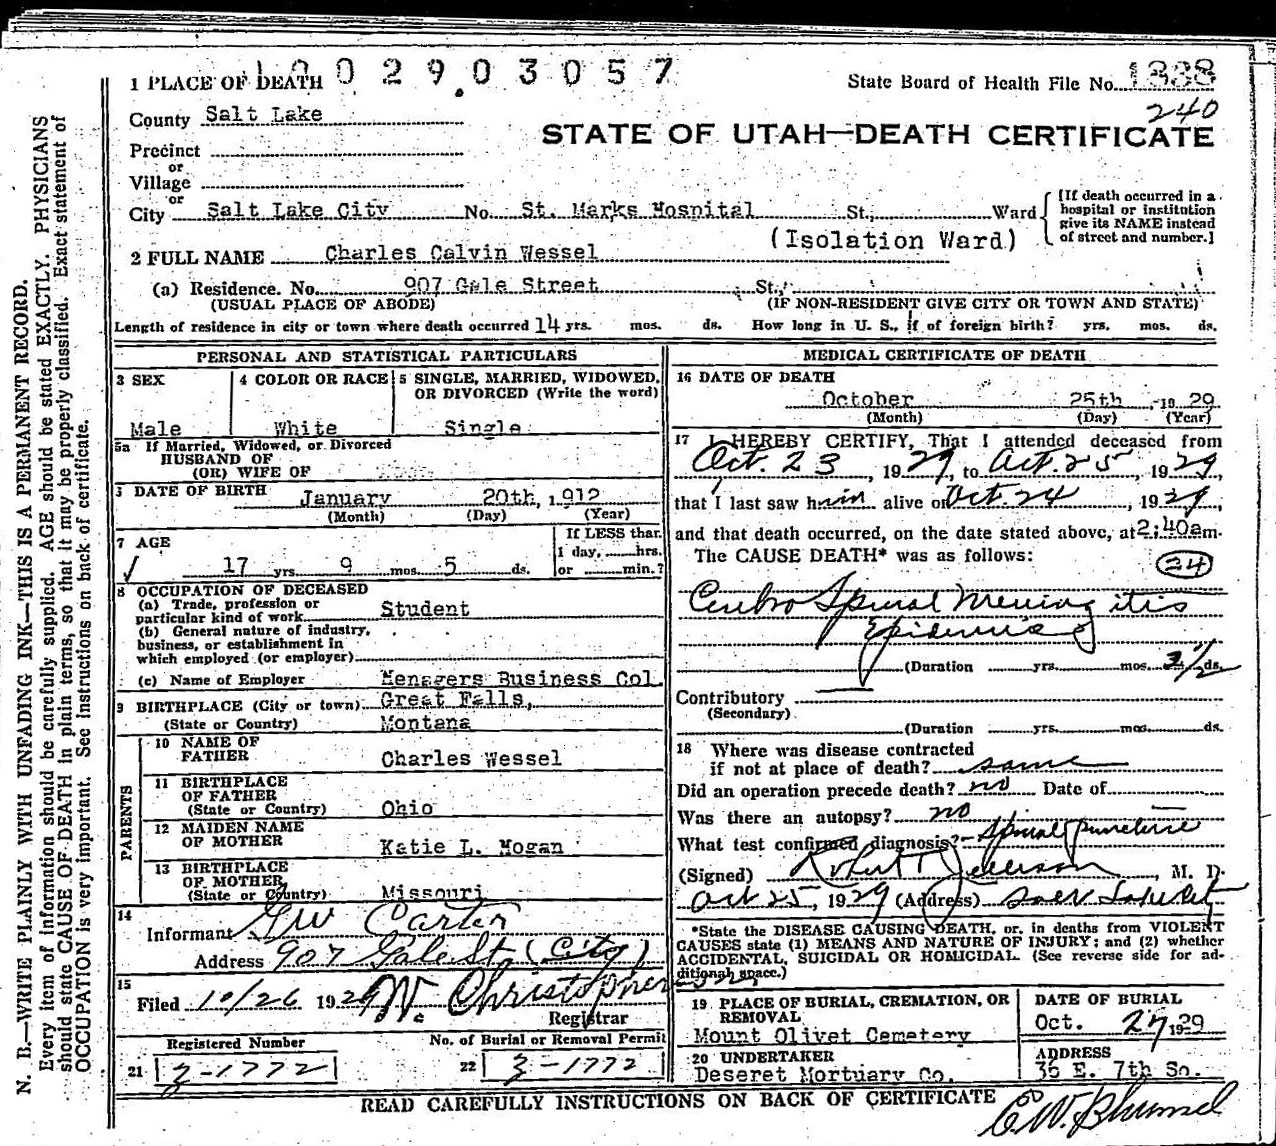 1 PLACE OF DEATH 1002903057
State Board of Health File No. 1338
240
County Salt Lake
STATE OF UTAH—DEATH CERTIFICATE
Precinct
or
Village
or
City Salt Lake City No. St. Marks Hospital St., Ward
[If death occurred in a
hospital or institution
give its NAME instead
of street and number.]
(Isolation Ward)
2 FULL NAME Charles Calvin Wessel
(a) Residence. No. 907 Gale Street St.,
(USUAL PLACE OF ABODE) (IF NON-RESIDENT GIVE CITY OR TOWN AND STATE)
Length of residence in city or town where death occurred 14 yrs. mos. ds. How long in U. S., if of foreign birth? yrs. mos. ds.
PERSONAL AND STATISTICAL PARTICULARS
3 SEX
Male
4 COLOR OR RACE
White
5 SINGLE, MARRIED, WIDOWED,
OR DIVORCED (Write the word)
Single
5a If Married, Widowed, or Divorced
HUSBAND OF
(OR) WIFE OF
DATE OF BIRTH January 20th, 1912
(Month) (Day) (Year)
7 AGE
17 yrs 9 mos. 5 ds.
If LESS than
1 day, hrs.
or min.?
8 OCCUPATION OF DECEASED
(a) Trade, profession or
particular kind of work Student
(b) General nature of industry,
business, or establishment in
which employed (or employer)
(c) Name of Employer Henagers Business Col.
9 BIRTHPLACE (City or town) Great Falls,
(State or Country) Montana
PARENTS
10 NAME OF
FATHER Charles Wessel
11 BIRTHPLACE
OF FATHER
(State or Country) Ohio
12 MAIDEN NAME
OF MOTHER Katie L. Hogan
13 BIRTHPLACE
OF MOTHER
(State or Country) Missouri
14
Informant GW Carter
Address 907 Gale St. (City)
15
Filed 10/26 1929 W. Christopherson
Registrar
Registered Number
21 3-1772
No. of Burial or Removal Permit
22 3-1772
MEDICAL CERTIFICATE OF DEATH
16 DATE OF DEATH
October 25th, 1929
(Month) (Day) (Year)
17 I HEREBY CERTIFY, That I attended deceased from
Oct. 23, 1929, to Oct. 25, 1929
that I last saw him alive on Oct. 24, 1929,
and that death occurred, on the date stated above, at 2:40am.
The CAUSE DEATH* was as follows:
24
Cerebro Spinal Meningitis
Epidemic
(Duration yrs. mos. 2 1/2 ds.
Contributory
(Secondary)
(Duration yrs. mos. ds.
18 Where was disease contracted
if not at place of death? same
Did an operation precede death? no Date of
Was there an autopsy? no
What test confirmed diagnosis? Spinal puncture
(Signed) Robert T Jellison, M. D.
Oct 25, 1929 (Address) Salt Lake City
*State the DISEASE CAUSING DEATH, or, in deaths from VIOLENT
CAUSES state (1) MEANS AND NATURE OF INJURY; and (2) whether
ACCIDENTAL, SUICIDAL OR HOMICIDAL. (See reverse side for ad-
ditional space.)
19 PLACE OF BURIAL, CREMATION, OR
REMOVAL
Mount Olivet Cemetery
DATE OF BURIAL
Oct. 27 1929
20 UNDERTAKER
Deseret Mortuary Co.
ADDRESS
36 E. 7th So.
READ CAREFULLY INSTRUCTIONS ON BACK OF CERTIFICATE
N. B.—WRITE PLAINLY WITH UNFADING INK—THIS IS A PERMANENT RECORD.
Every item of information should be carefully supplied. AGE should be stated EXACTLY. PHYSICIANS
should state CAUSE OF DEATH in plain terms, so that it may be properly classified. Exact statement of
OCCUPATION is very important. See instructions on back of certificate.